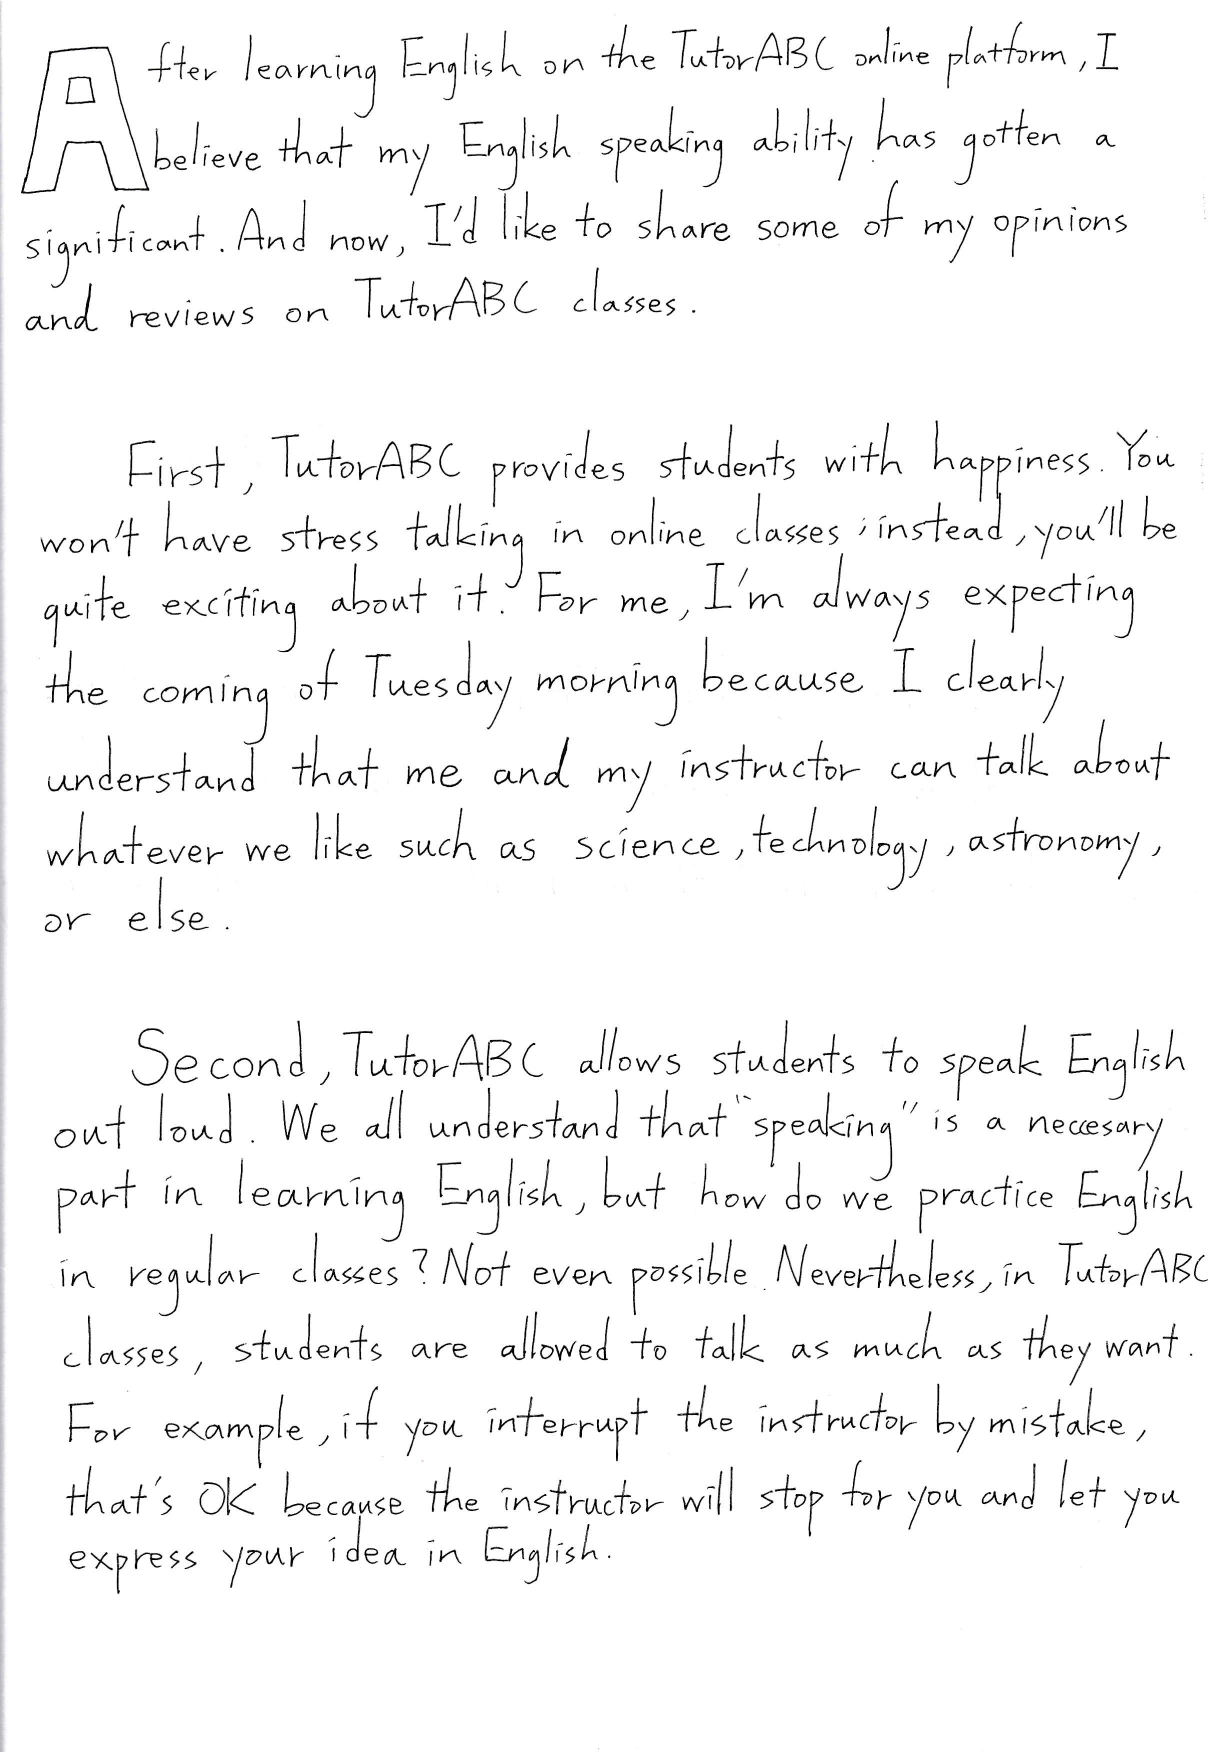 After learning English on the TutorABC online platform, I
believe that my English speaking ability has gotten a
significant. And now, I'd like to share some of my opinions
and reviews on TutorABC classes.
First, TutorABC provides students with happiness. You
won't have stress talking in online classes; instead, you'll be
quite exciting about it. For me, I'm always expecting
the coming of Tuesday morning because I clearly
understand that me and my instructor can talk about
whatever we like such as science, technology, astronomy,
or else.
Second, TutorABC allows students to speak English
out loud. We all understand that "speaking" is a neccesary
part in learning English, but how do we practice English
in regular classes? Not even possible. Nevertheless, in TutorABC
classes, students are allowed to talk as much as they want.
For example, if you interrupt the instructor by mistake,
that's OK because the instructor will stop for you and let you
express your idea in English.